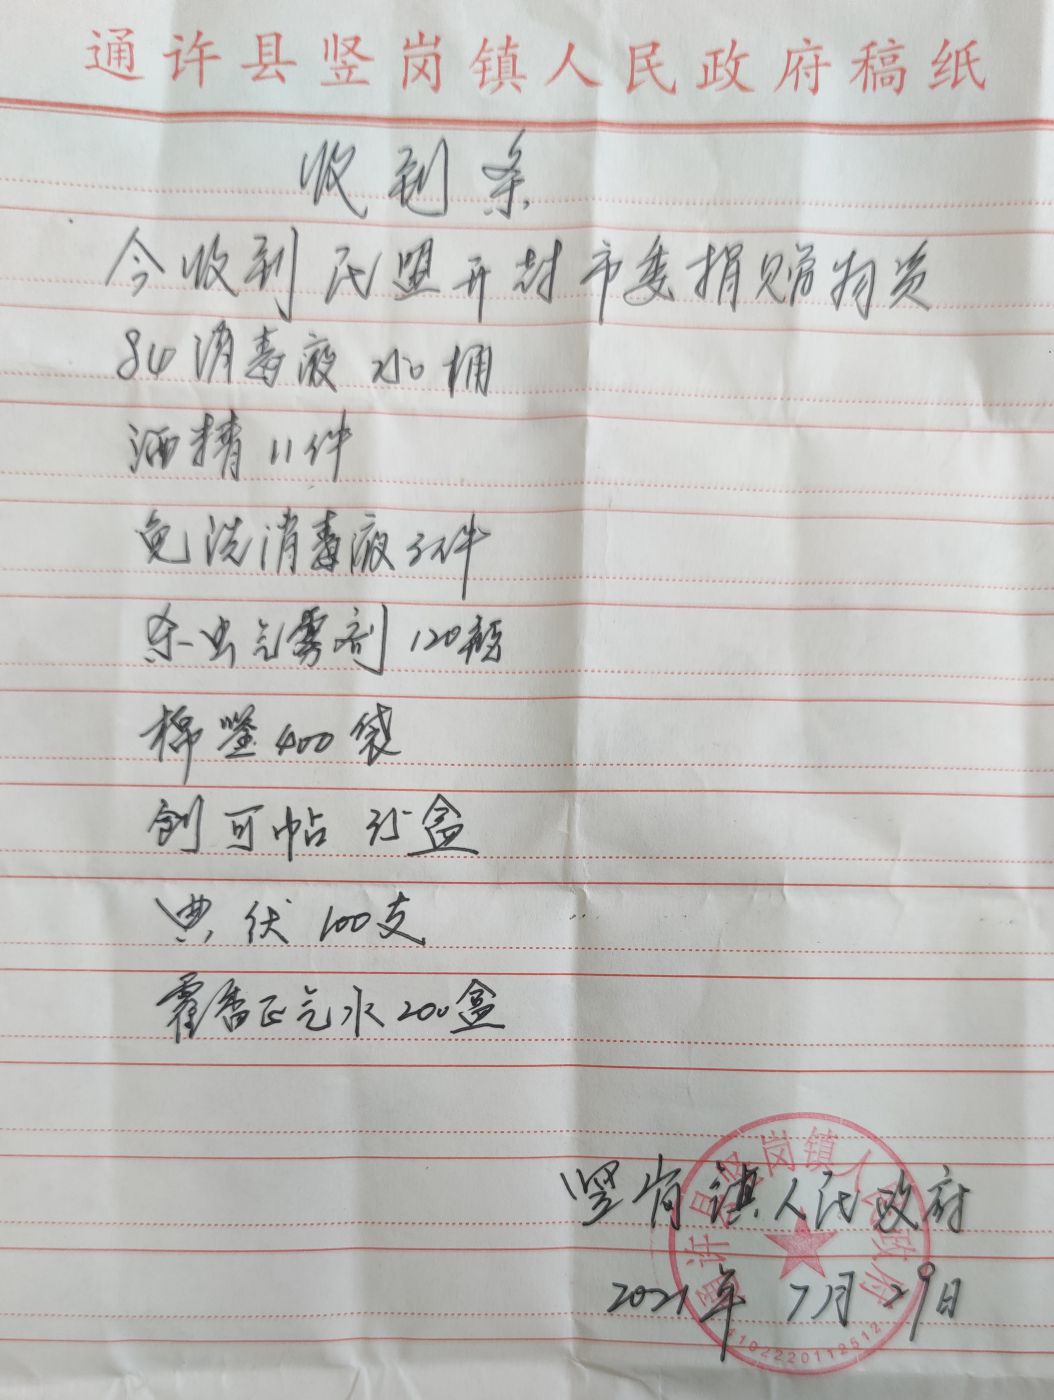 通许县竖岗镇人民政府稿纸
收到条
今收到民盟开封市委捐赠物资
84消毒液 桶
酒精11件
免洗消毒液 件
杀虫气雾剂120瓶
棉签400袋
创可帖 35盒
典伏100支
霍香正气水200盒
竖岗镇人民政府
2021年7月29日
通许县竖岗镇人民政府
4102220112512